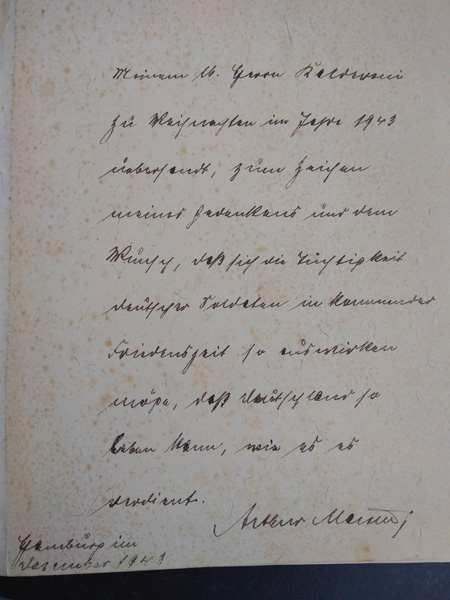 Meinem lb. Herrn Kalderoni
zu Weihnachten im Jahre 1943
uebersandt, zum Zeichen
meines Gedenkens und dem
Wunsch, daß sich die Tüchtigkeit
deutscher Soldaten in kommender
Friedenszeit so auswirken
möge, daß Deutschland so
leben kann, wie es es
verdient.
Arthur
Hamburg im
Dezember 1943